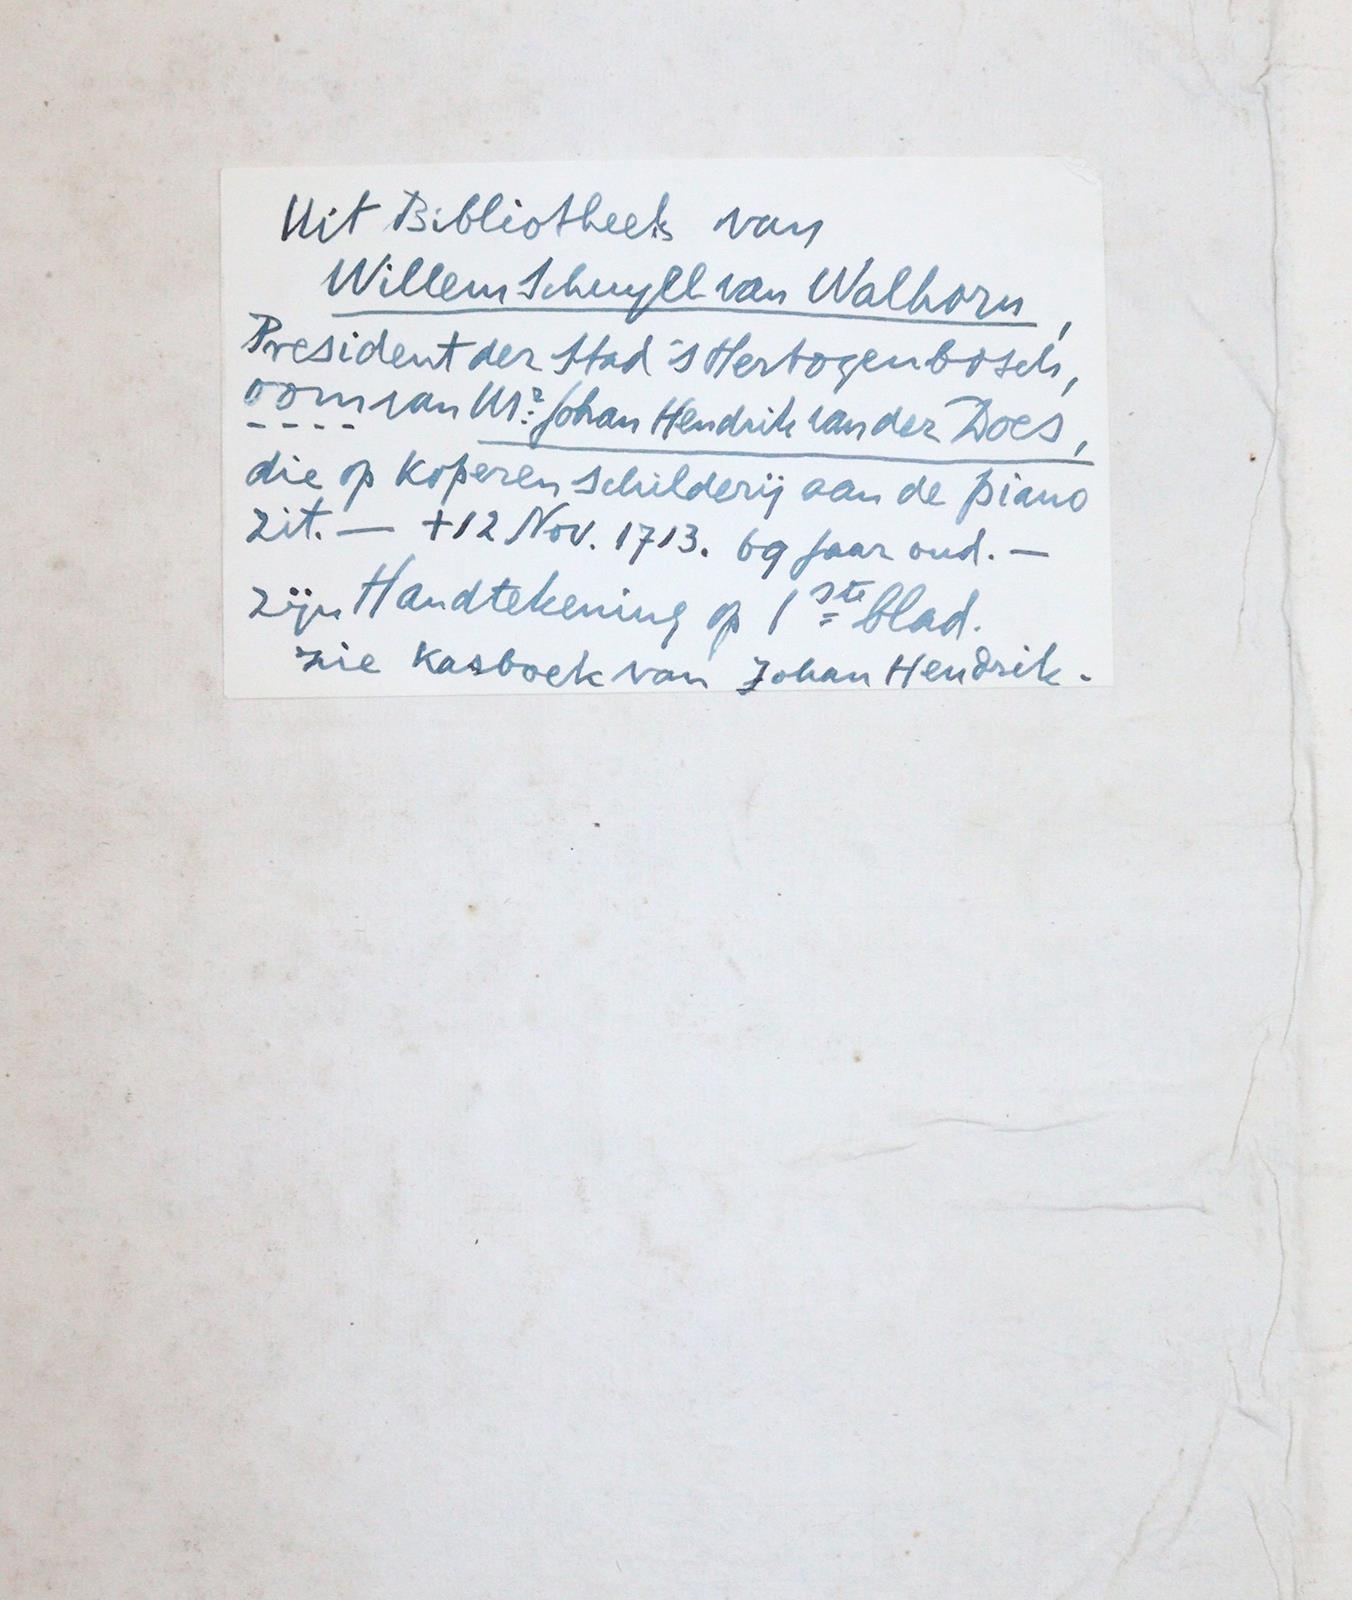 Uit Bibliotheek van
Willem Schuyll van Walhorn,
President der Stad 's Hertogenbosch,
oom van Mr. Johan Hendrik van der Does,
die op koperen schilderij aan de piano
zit. — +12 Nov. 1713. 69 jaar oud. —
zijn Handtekening op 1ste blad.
zie Kasboek van Johan Hendrik.